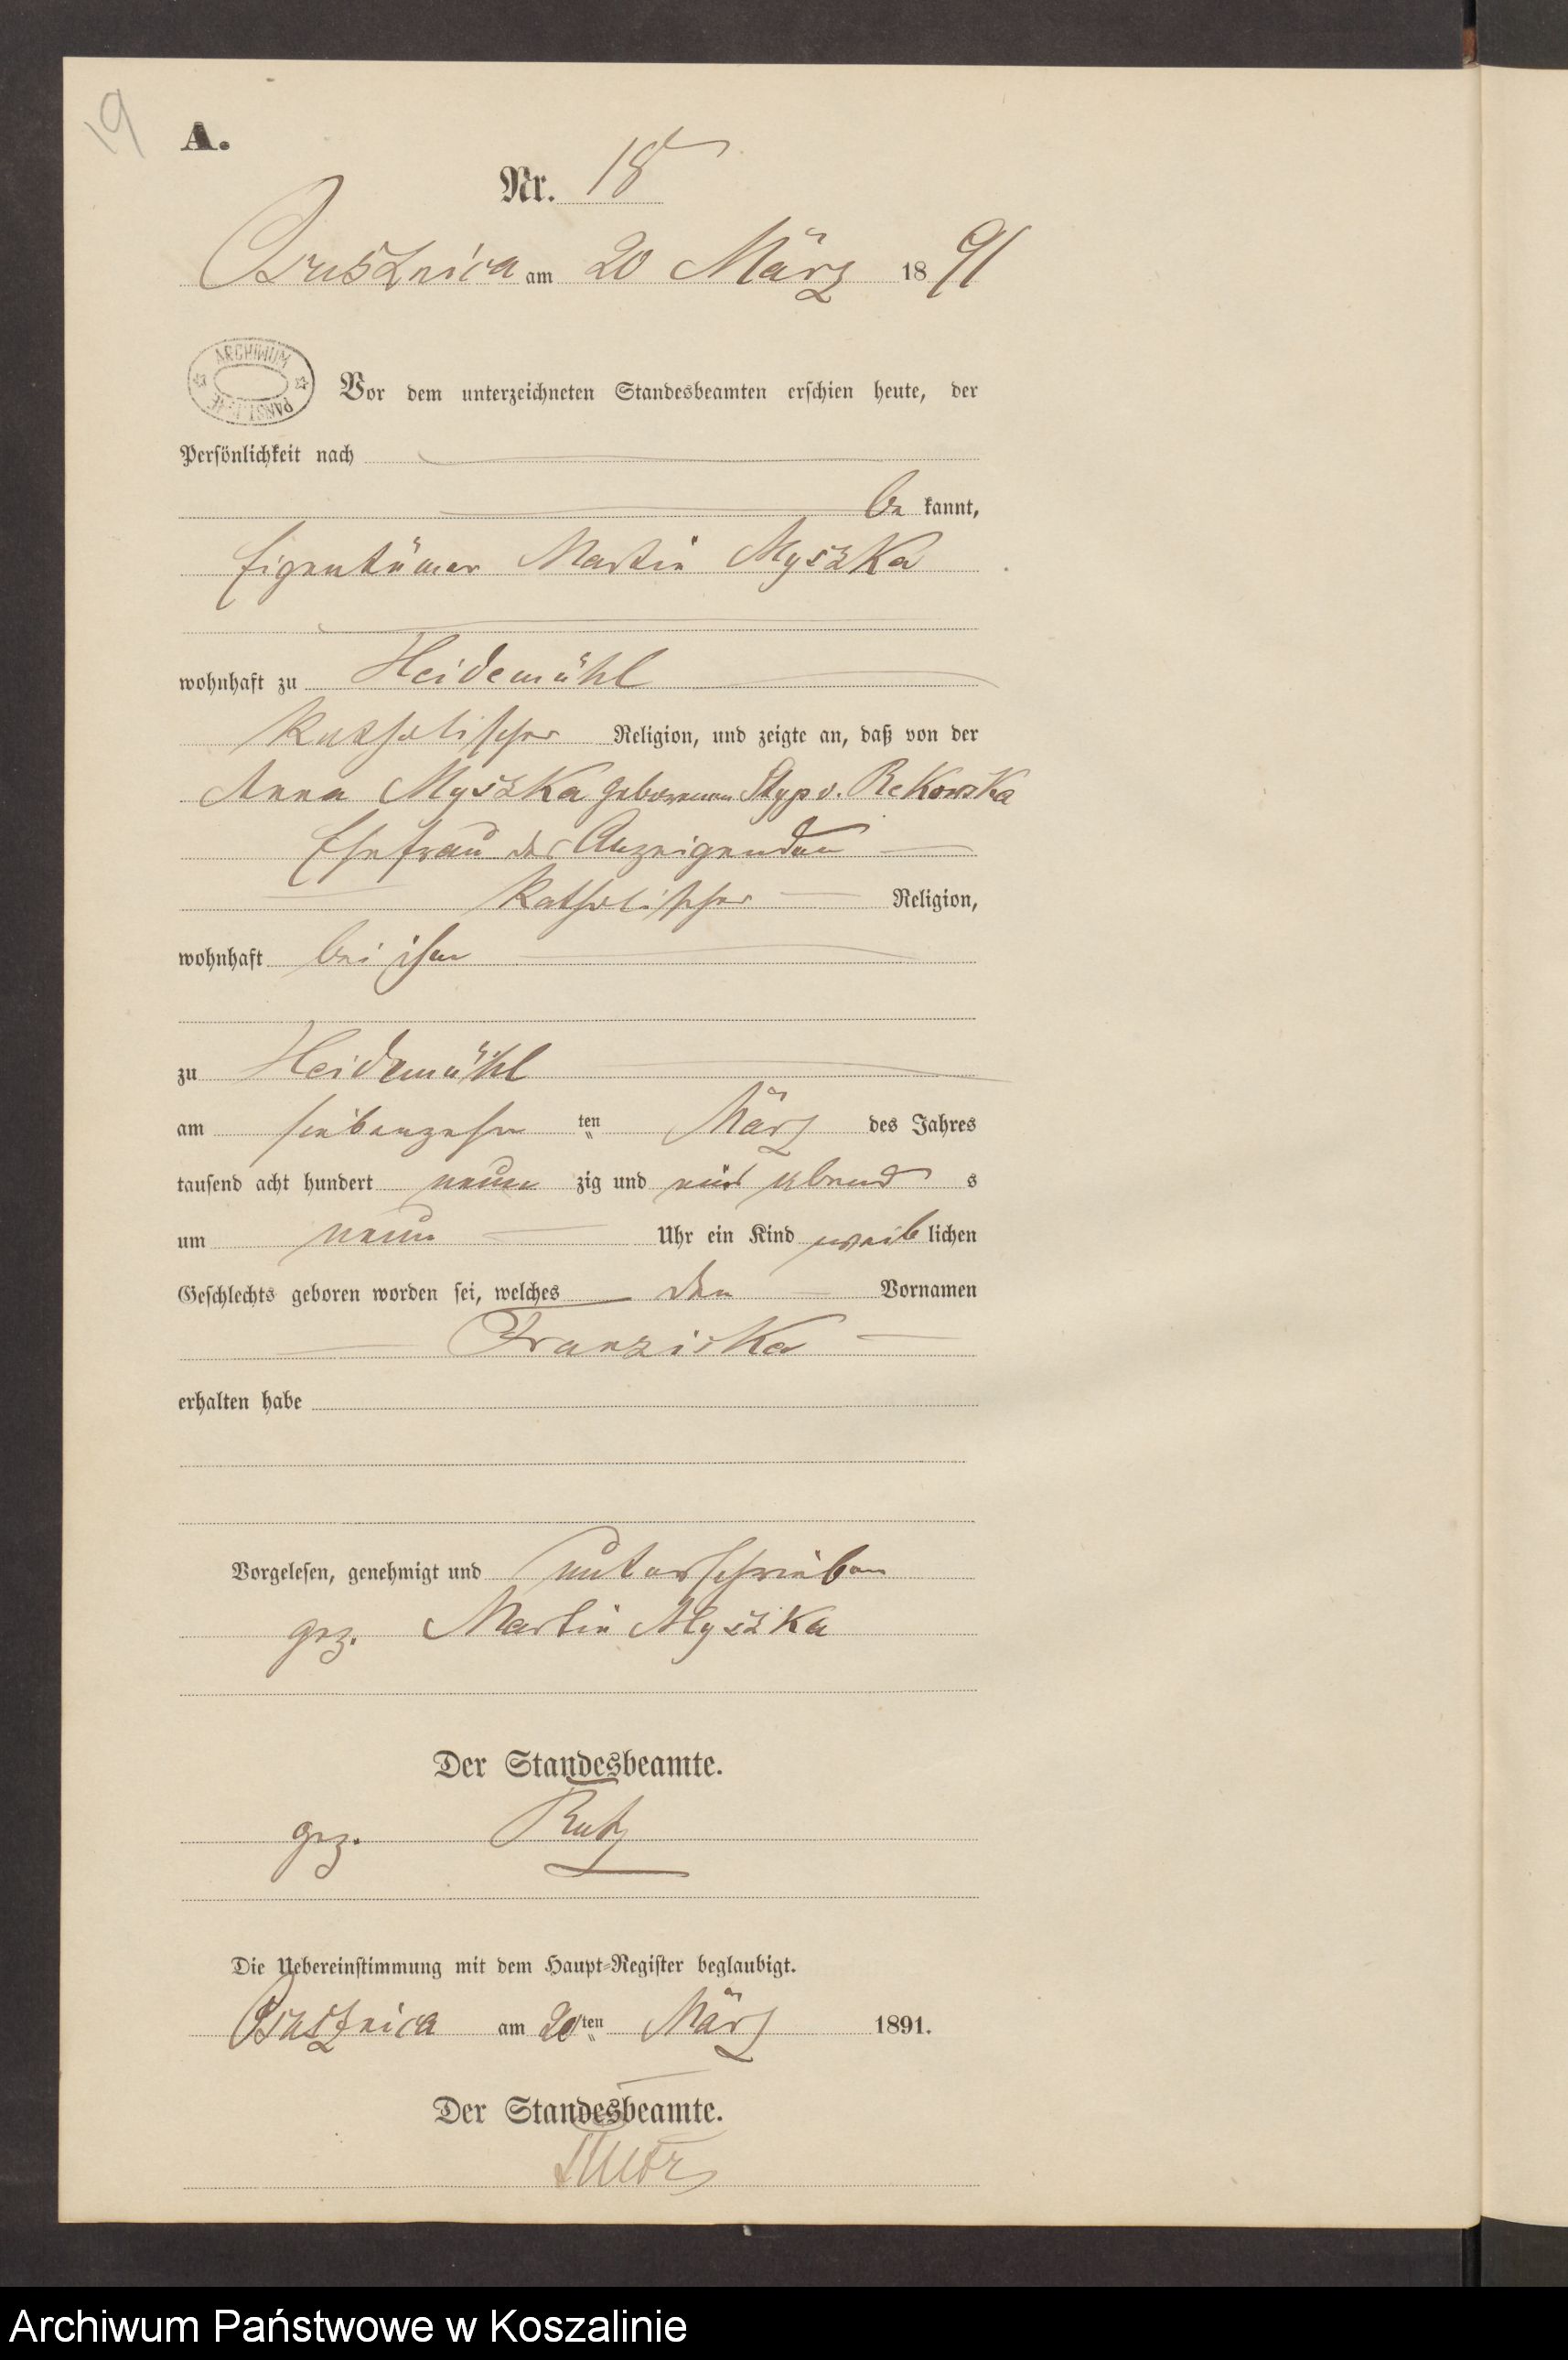 19
A.
Nr. 18
Brusznica am 20 März 1891
ARCHIWUM
Vor dem unterzeichneten Standesbeamten erschien heute, der
Persönlichkeit nach
be kannt,
Eigentümer Martin Myszka
wohnhaft zu Heidemühl
katholischer Religion, und zeigte an, daß von der
Anna Myszka geborenen Styp v. Rekowska
Ehefrau des Anzeigenden
katholischer Religion,
wohnhaft bei ihm
zu Heidemühl
am siebenzehn ten März des Jahres
tausend acht hundert neun zig und eins abend s
um neun Uhr ein Kind weib lichen
Geschlechts geboren worden sei, welches den Vornamen
Franziska
erhalten habe
Vorgelesen, genehmigt und unterschrieben
gez. Martin Myszka
Der Standesbeamte.
gez. Rutz
Die Uebereinstimmung mit dem Haupt-Register beglaubigt.
Brusznica am 20 ten März 1891.
Der Standesbeamte.
Archiwum Państwowe w Koszalinie